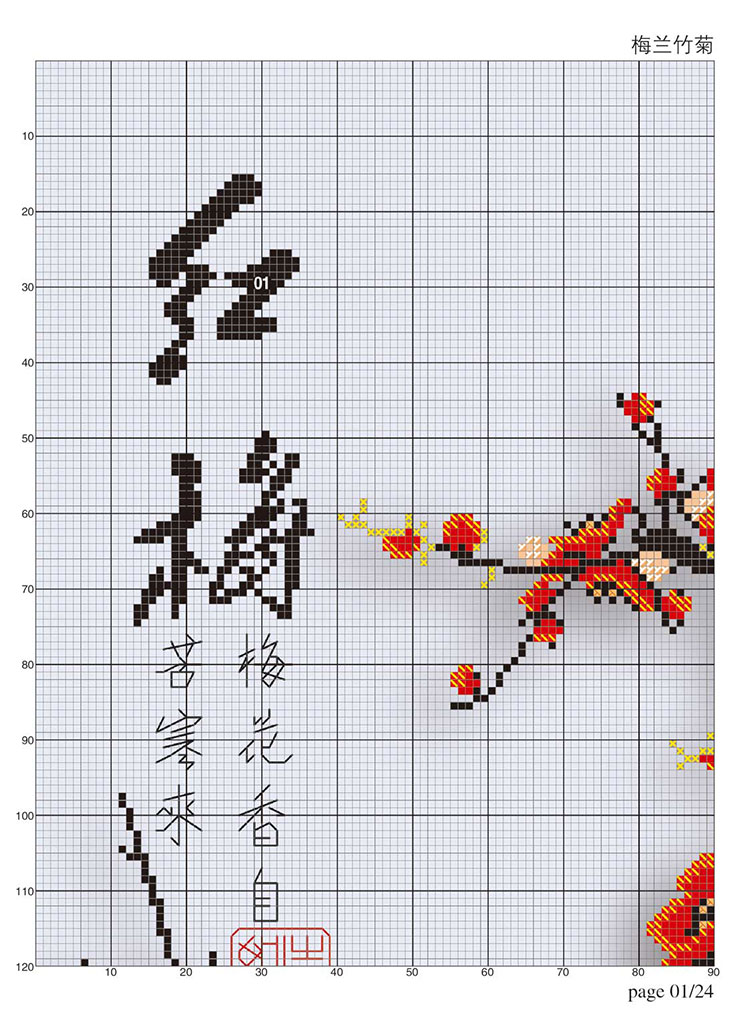 梅兰竹菊
10
20
30
40
50
60
70
80
90
100
110
120
红梅
01
梅花香自
苦寒来
10 20 30 40 50 60 70 80 90
page 01/24